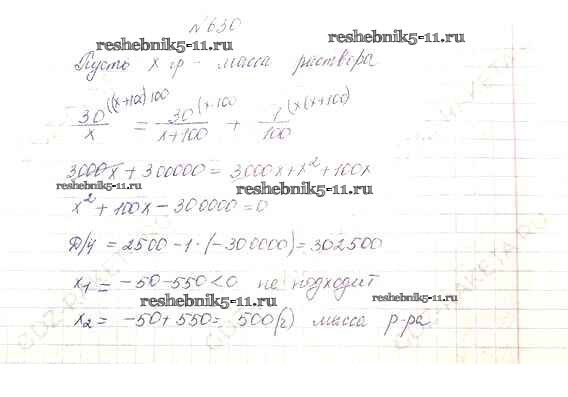 №630
reshebnik5-11.ru
Пусть x гр – масса раствора
30/x ((x+100)100 = 30/(x+100) (x·100 + 1/100 (x(x+100)
3000x + 300000 = 3000x + x² + 100x
reshebnik5-11.ru reshebnik5-11.ru
x² + 100x – 300000 = 0
Д/4 = 2500 – 1·(–300000) = 302500
x₁ = –50–550 < 0 не подходит
reshebnik5-11.ru reshebnik5-11.ru
x₂ = –50 + 550 = 500(г) масса р-ра